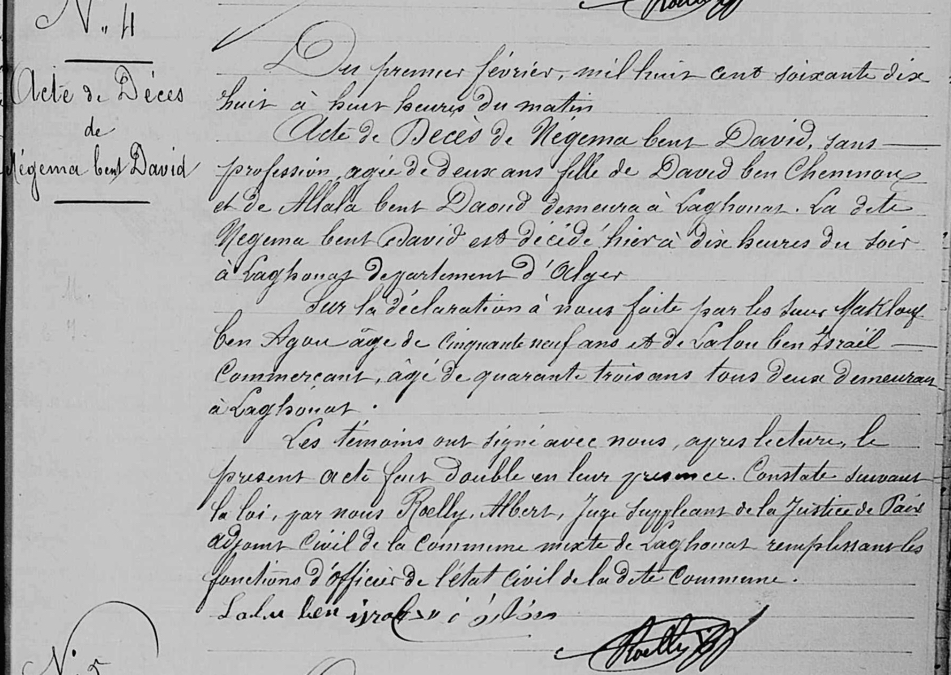 N° 4
Acte de Décès
de
Négema bent David
Du premier février, mil huit cent soixante dix
huit à huit heures du matin
Acte de Decès de Négema bent David, sans
profession, agée de deux ans fille de David ben Chemnou
et de Allala bent Daoud demeura à Laghouat. La dite
Négema bent David est décidé hier à dix heures du soir
à Laghouat departement d'Alger
Sur la déclaration à nous faite par les sieur Maklouf
ben Agou âge de Cinquante neuf ans et de Lalou ben Israël
Commerçant, âgé de quarante trois ans tous deux demeuran
à Laghouat.
Les témoins ont signé avec nous, apres lecture, le
present acte fait double en leur presence. Constate suivant
la loi, par nous Roelly, Albert, Juge Suppleant de la Justice de Paix
adjoint Civil de la Commune mixte de Laghouat remplissant les
fonctions d'officier de l'état Civil de la dite Commune.
Lalu ben
Roelly
N° 5